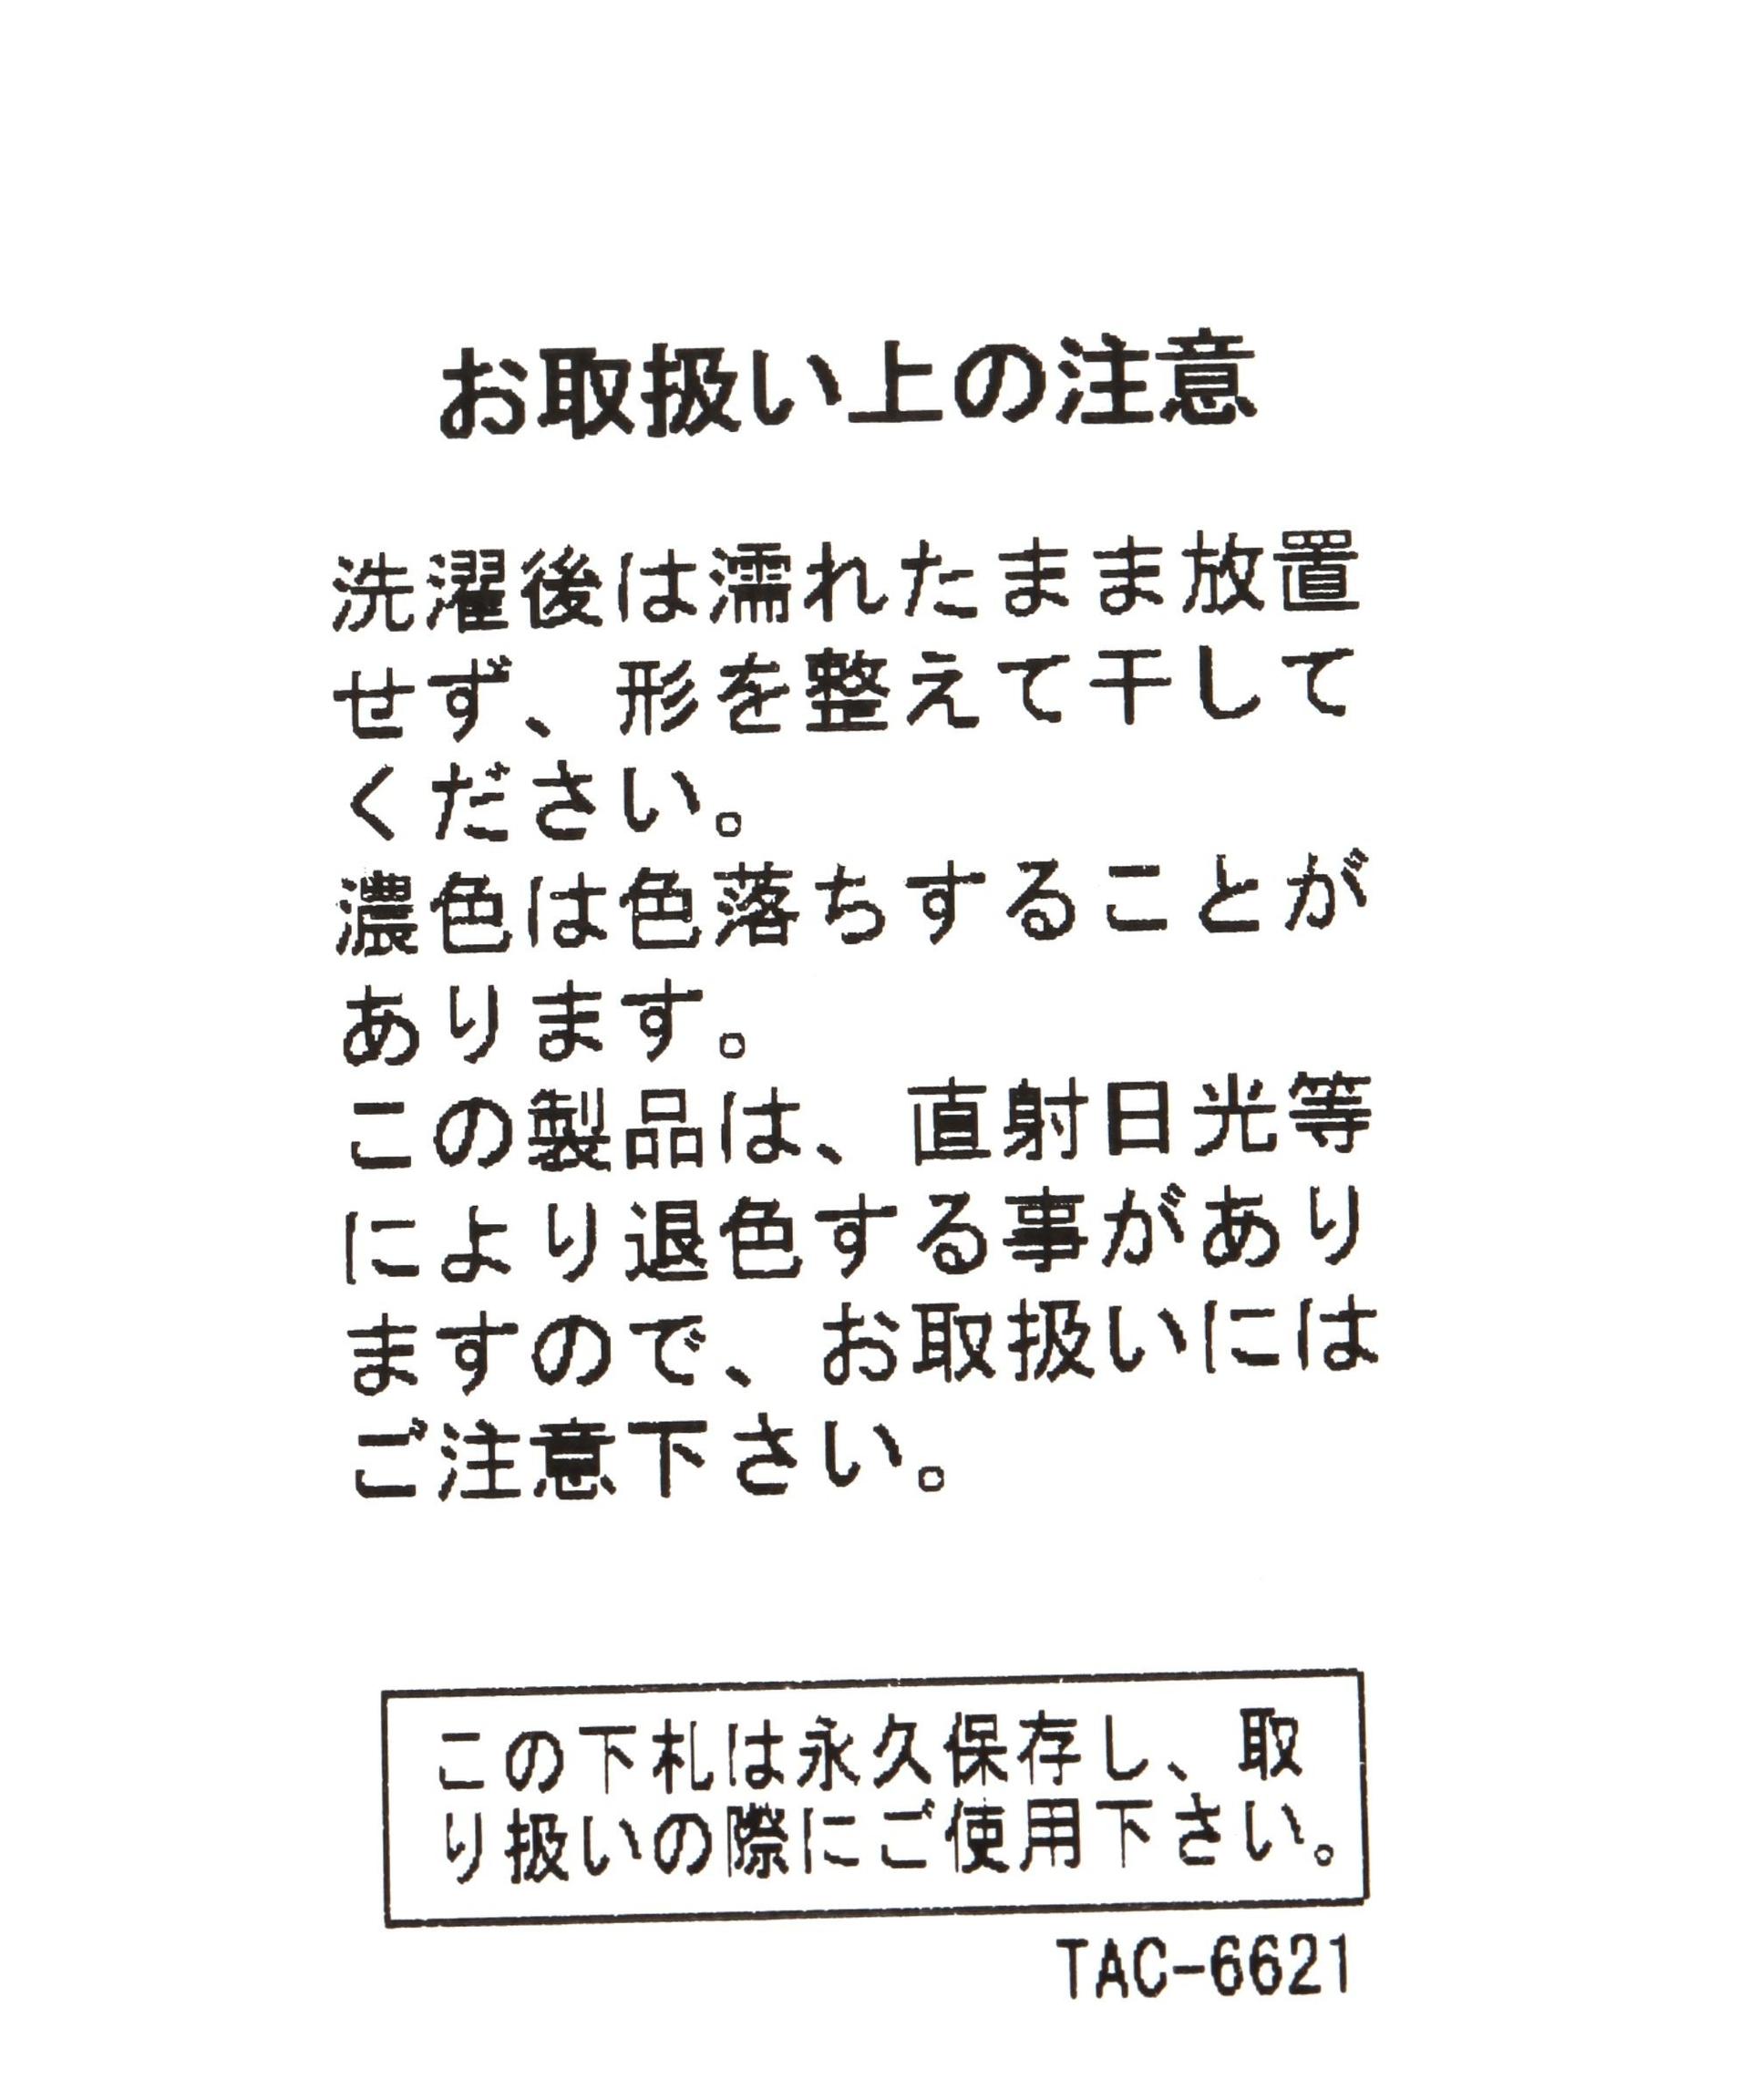 お取扱い上の注意
洗濯後は濡れたまま放置
せず、形を整えて干して
ください。
濃色は色落ちすることが
あります。
この製品は、直射日光等
により退色する事があり
ますので、お取扱いには
ご注意下さい。
この下札は永久保存し、取
り扱いの際にご使用下さい。
TAC-6621